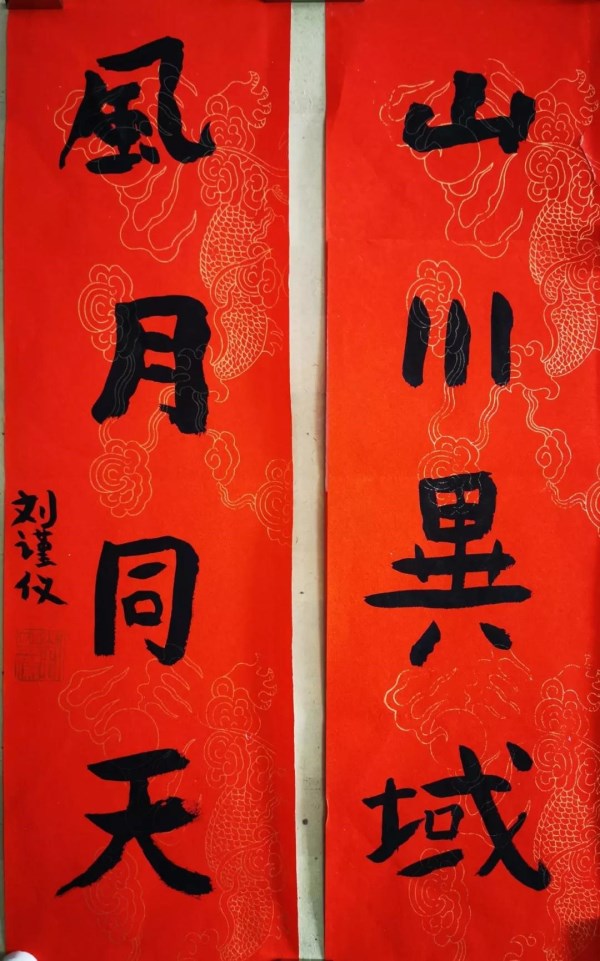 山川異域
風月同天
刘谨仪